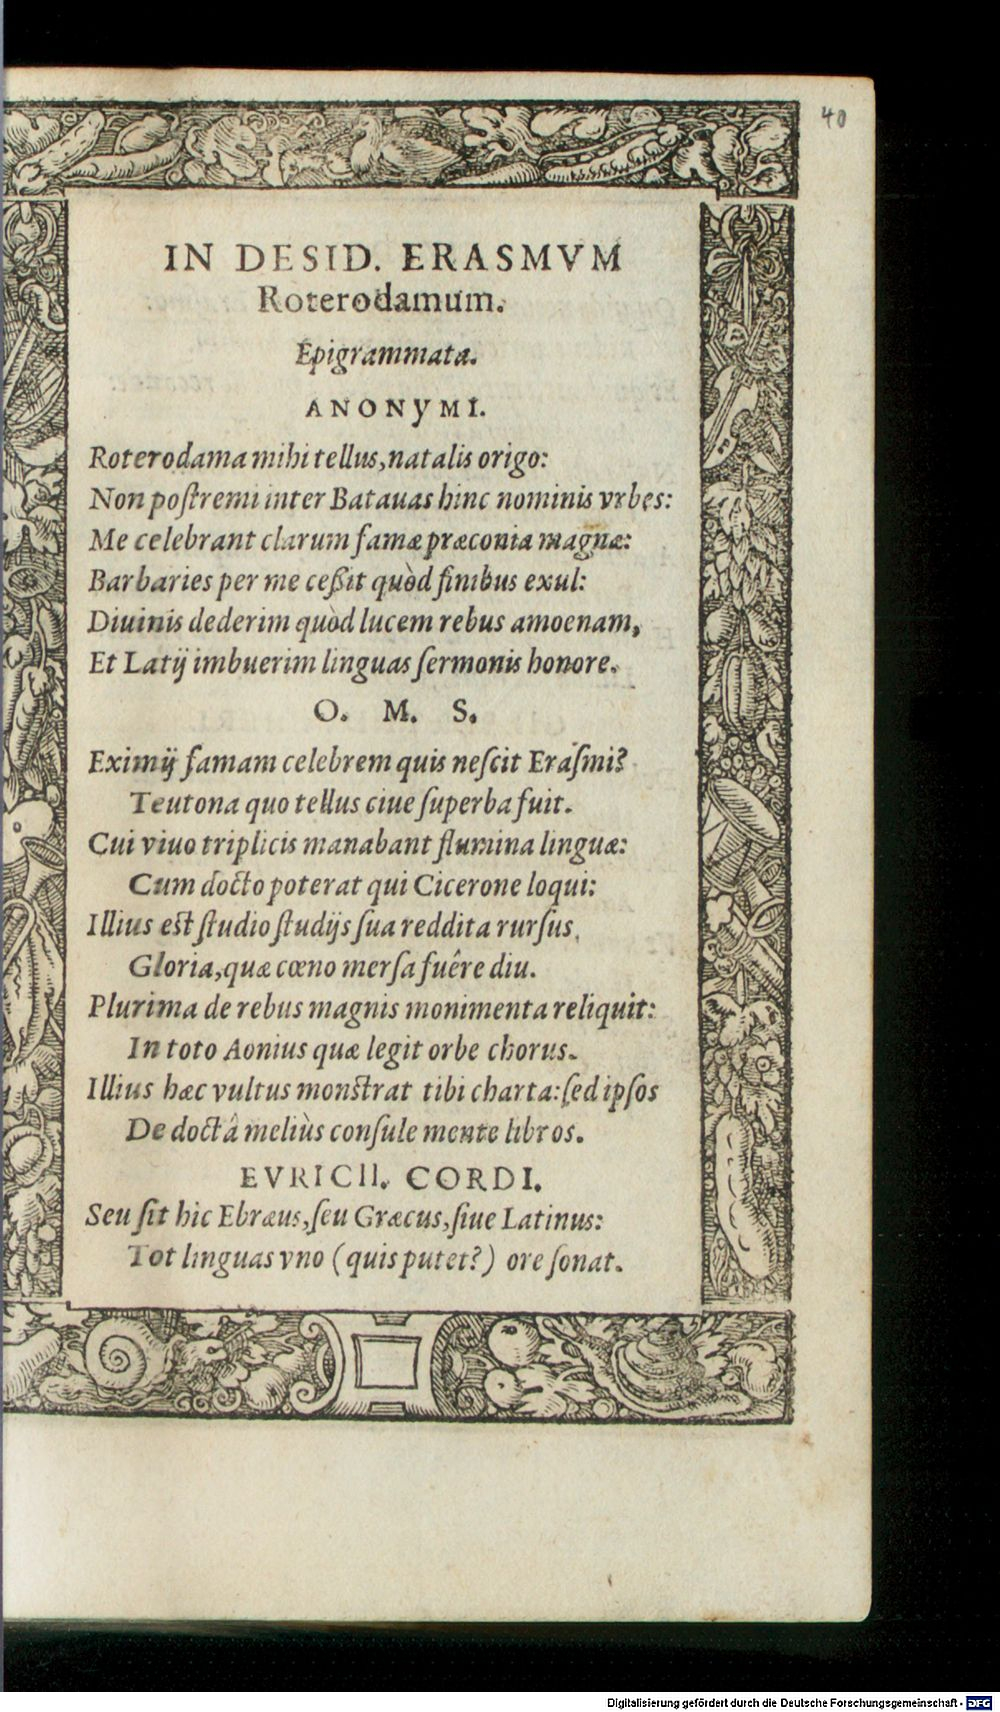 40
IN DESID. ERASMVM
Roterodamum.
Epigrammata.
ANONyMI.
Roterodama mihi tellus, natalis origo:
Non poſtremi inter Batauas hinc nominis vrbes:
Me celebrant clarum famæ præconia magnæ:
Barbaries per me ceßit quòd finibus exul:
Diuinis dederim quòd lucem rebus amoenam,
Et Latij imbuerim linguas ſermonis honore.
O. M. S.
Eximij famam celebrem quis neſcit Eraſmi?
Teutona quo tellus ciue ſuperba fuit.
Cui viuo triplicis manabant flumina linguæ:
Cum docto poterat qui Cicerone loqui:
Illius est ſtudio ſtudijs ſua reddita rurſus,
Gloria, quæ cœno merſa fuêre diu.
Plurima de rebus magnis monimenta reliquit:
In toto Aonius quæ legit orbe chorus.
Illius hæc vultus monstrat tibi charta: ſed ipſos
De doctâ meliùs conſule mente libros.
EVRICII. CORDI.
Seu ſit hic Ebræus, ſeu Græcus, ſiue Latinus:
Tot linguas vno (quis putet?) ore ſonat.
Digitalisierung gefördert durch die Deutsche Forschungsgemeinschaft - DFG